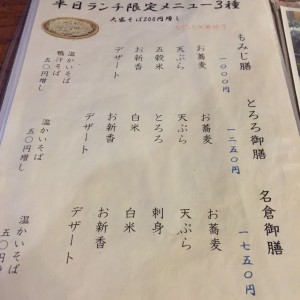 平日ランチ限定メニュー3種
大盛そば200円増し
もみじ膳
一〇〇〇円
お蕎麦
天ぷら
五穀米
お新香
デザート
温かいそば
鴨汁そば
五〇円増し
とろろ御膳
一二五〇円
お蕎麦
天ぷら
とろろ
白米
お新香
デザート
温かいそば
五〇円増し
名倉御膳
一七五〇円
お蕎麦
天ぷら
刺身
白米
お新香
デザート
温かいそば
五〇円増し